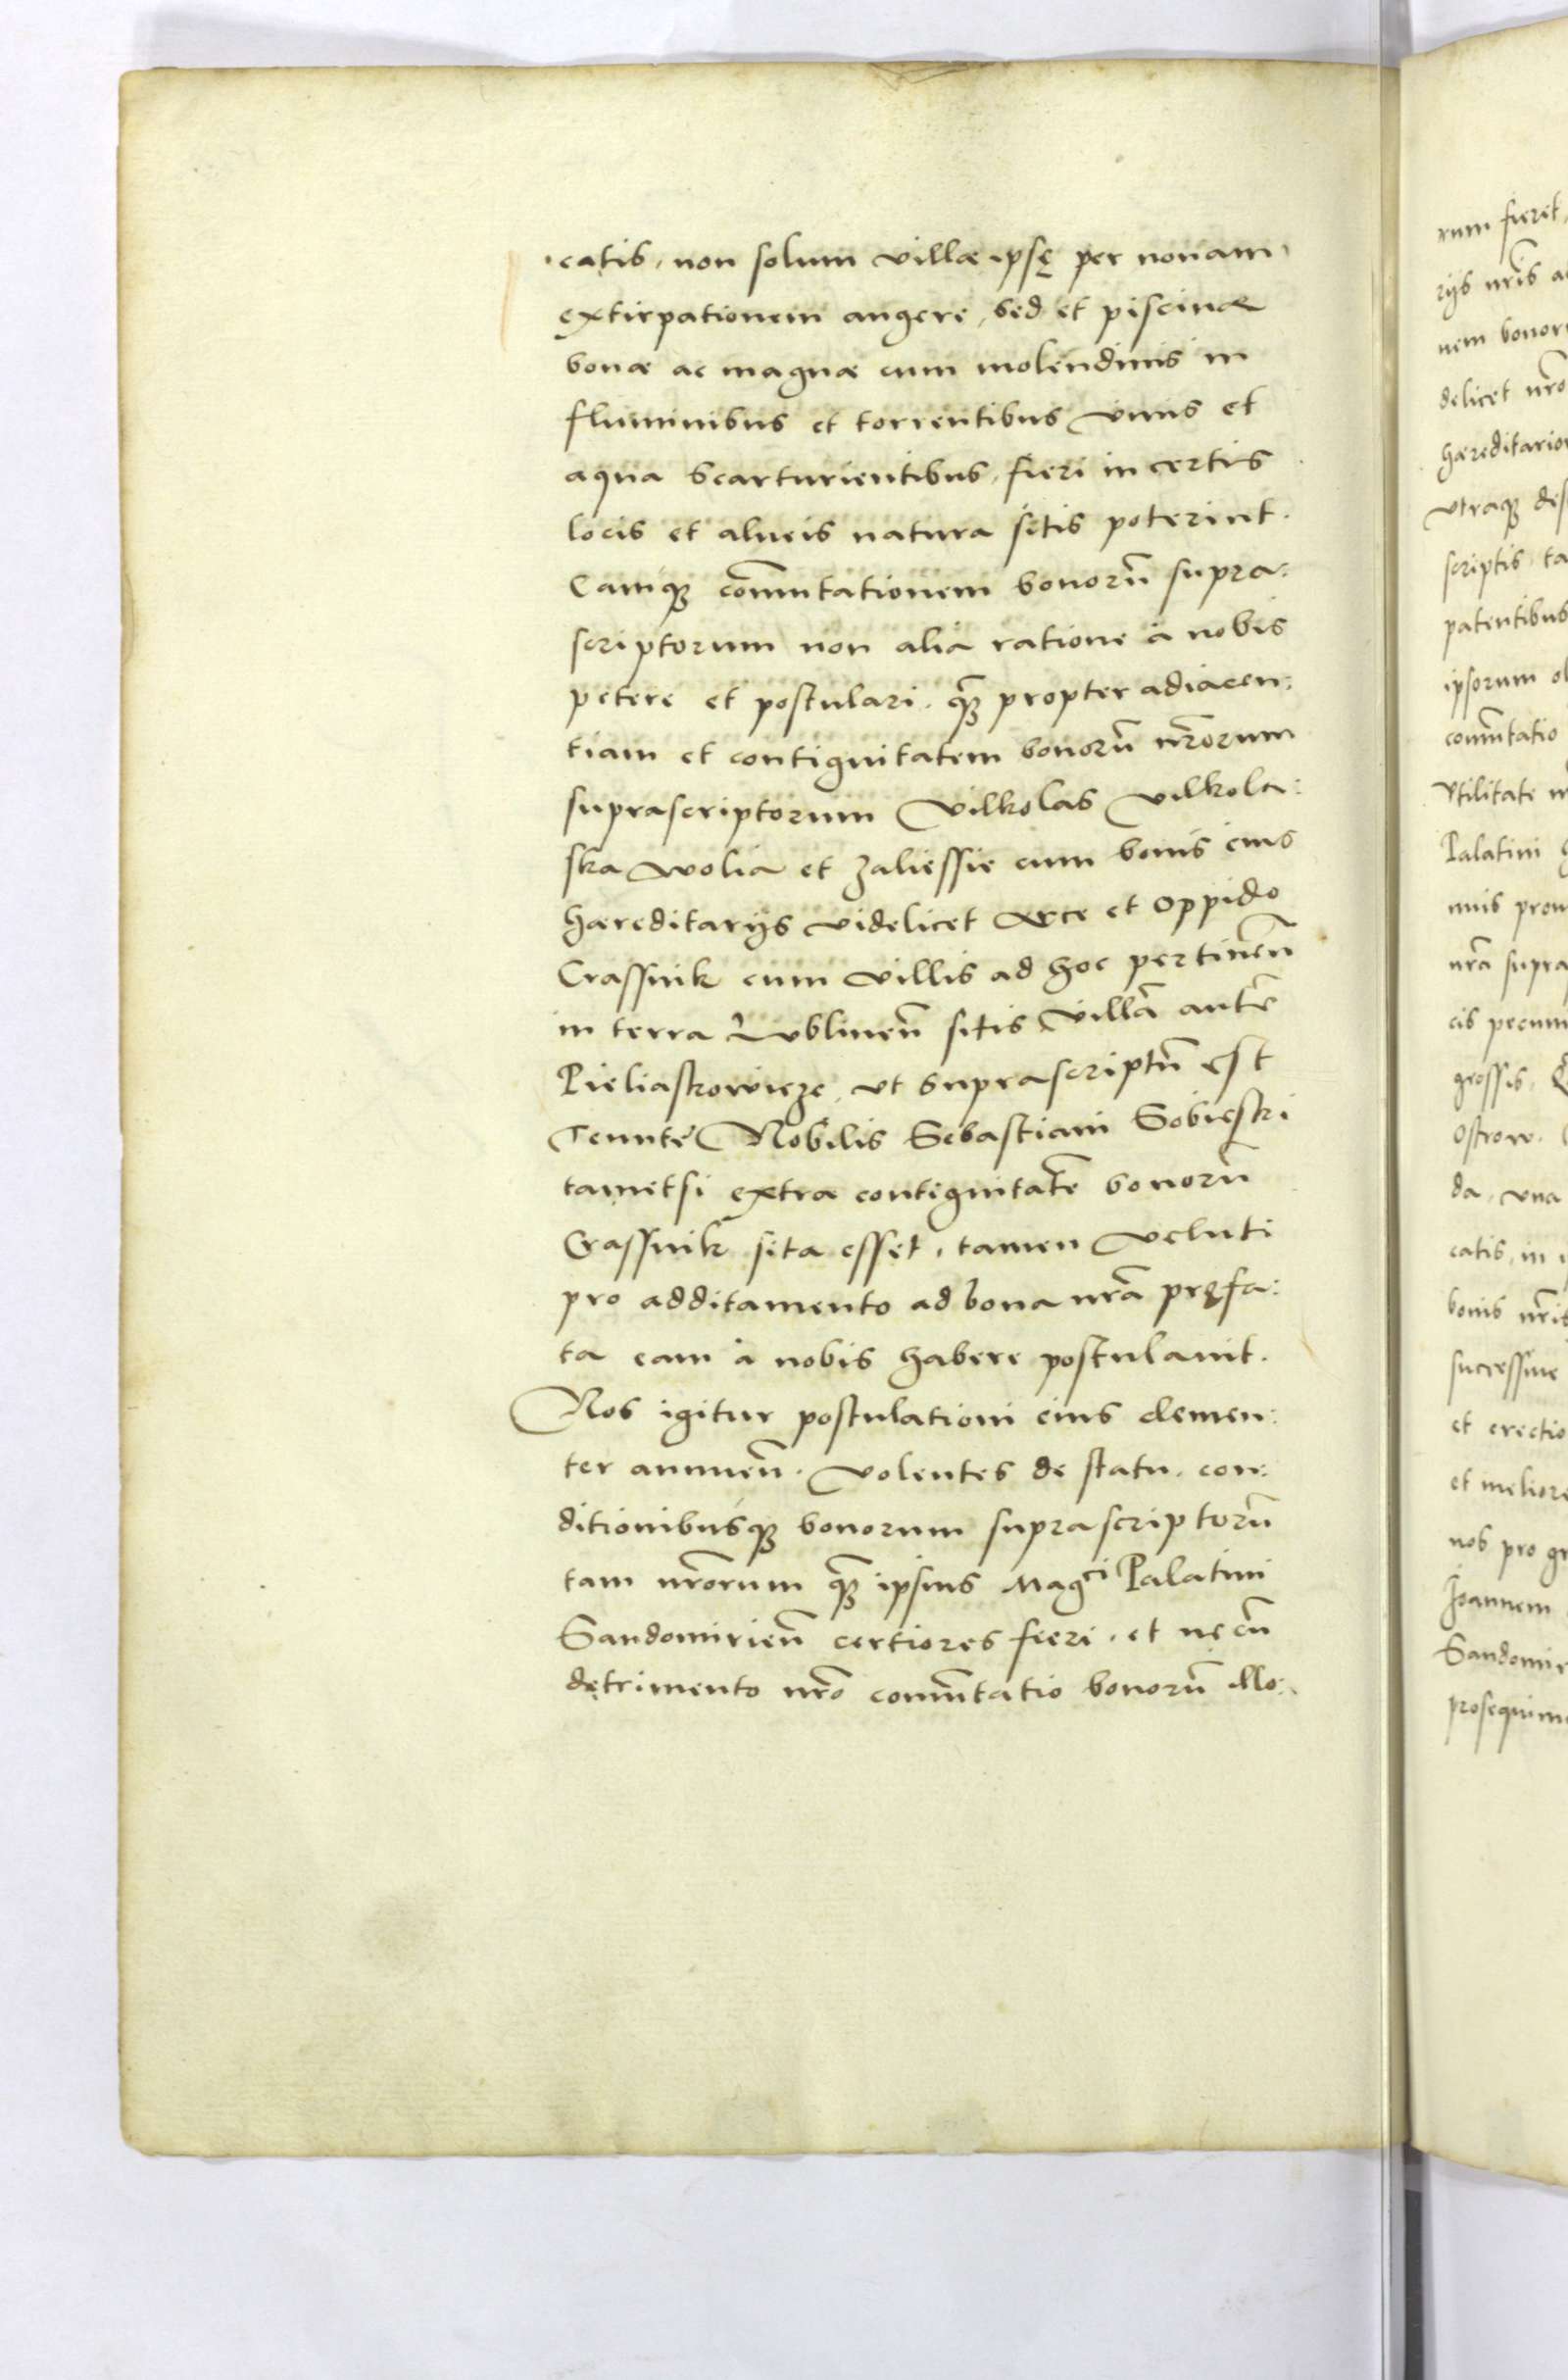 catis, non solum villæ ipsę per nouam
extirpationem augere, sed et piscinæ
bonæ ac magnæ cum molendinis in
fluminibus et torrentibus viuis et
aqua scarturientibus, fieri in certis
locis et alueis natura sitis poterint.
Eamq; com̃utationem bonorũ supra:
scriptorum non alia ratione à nobis
petere et postulari, q̃ propter adiacen:
tiam et contiguitatem bonorũ nr̃orum
suprascriptorum Vilkolas Vilkola:
ska wolia et Zaliessie cum bonis eius
hæreditarijs videlicet Arce et Oppido
Crassnik cum villis ad hoc pertineñ
in terra Lublineñ sitis villã autẽ
Pieliaskowicze, vt suprascriptũ est
Nobilis Sebastiani Sobieski
tametsi extra contiguitatẽ bonorũ
Crassnik sita esset, tamen veluti
pro additamento ad bona nr̃a pręfa:
ta eam à nobis habere postulauit.
Nos igitur postulationi eius clemen:
ter annueñ. volentes de statu, con:
ditionibusq; bonorum suprascriptorũ
tam nr̃orum q̃ ipsius Mag^ci Palatini
Sandomirieñ certiores fieri, et ne cũ
detrimento nr̃o com̃utatio bonorũ illo:
rum fieret,
rijs nr̃is a
nem bonor
delicet nr̃o
hæreditario
vtraq; des
scriptis, ta
patentibus
ipsorum ol
com̃utatio
Vtilitate
Palatini
nr̃a supra
cis pecun
grossis,
Ostrow.
da, vna
catis, in
bonis nr̃is
successiue
et erectio
et meliore
nos pro gr
Joannem
Sandomir
prosequim